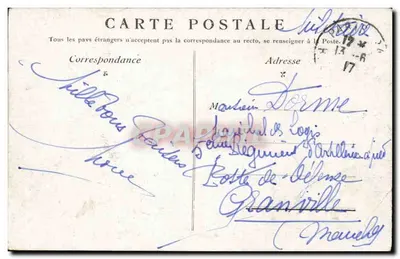 Militaire
CARTE POSTALE
Tous les pays étrangers n'acceptent pas la correspondance au recto, se renseigner à la Poste.
Correspondance
Adresse
17
13 - 6
17
Mille bons
Monsieur Dorme
Maréchal des Logis
Régiment d'Artillerie à pied
Poste de défense
Granville
Manche